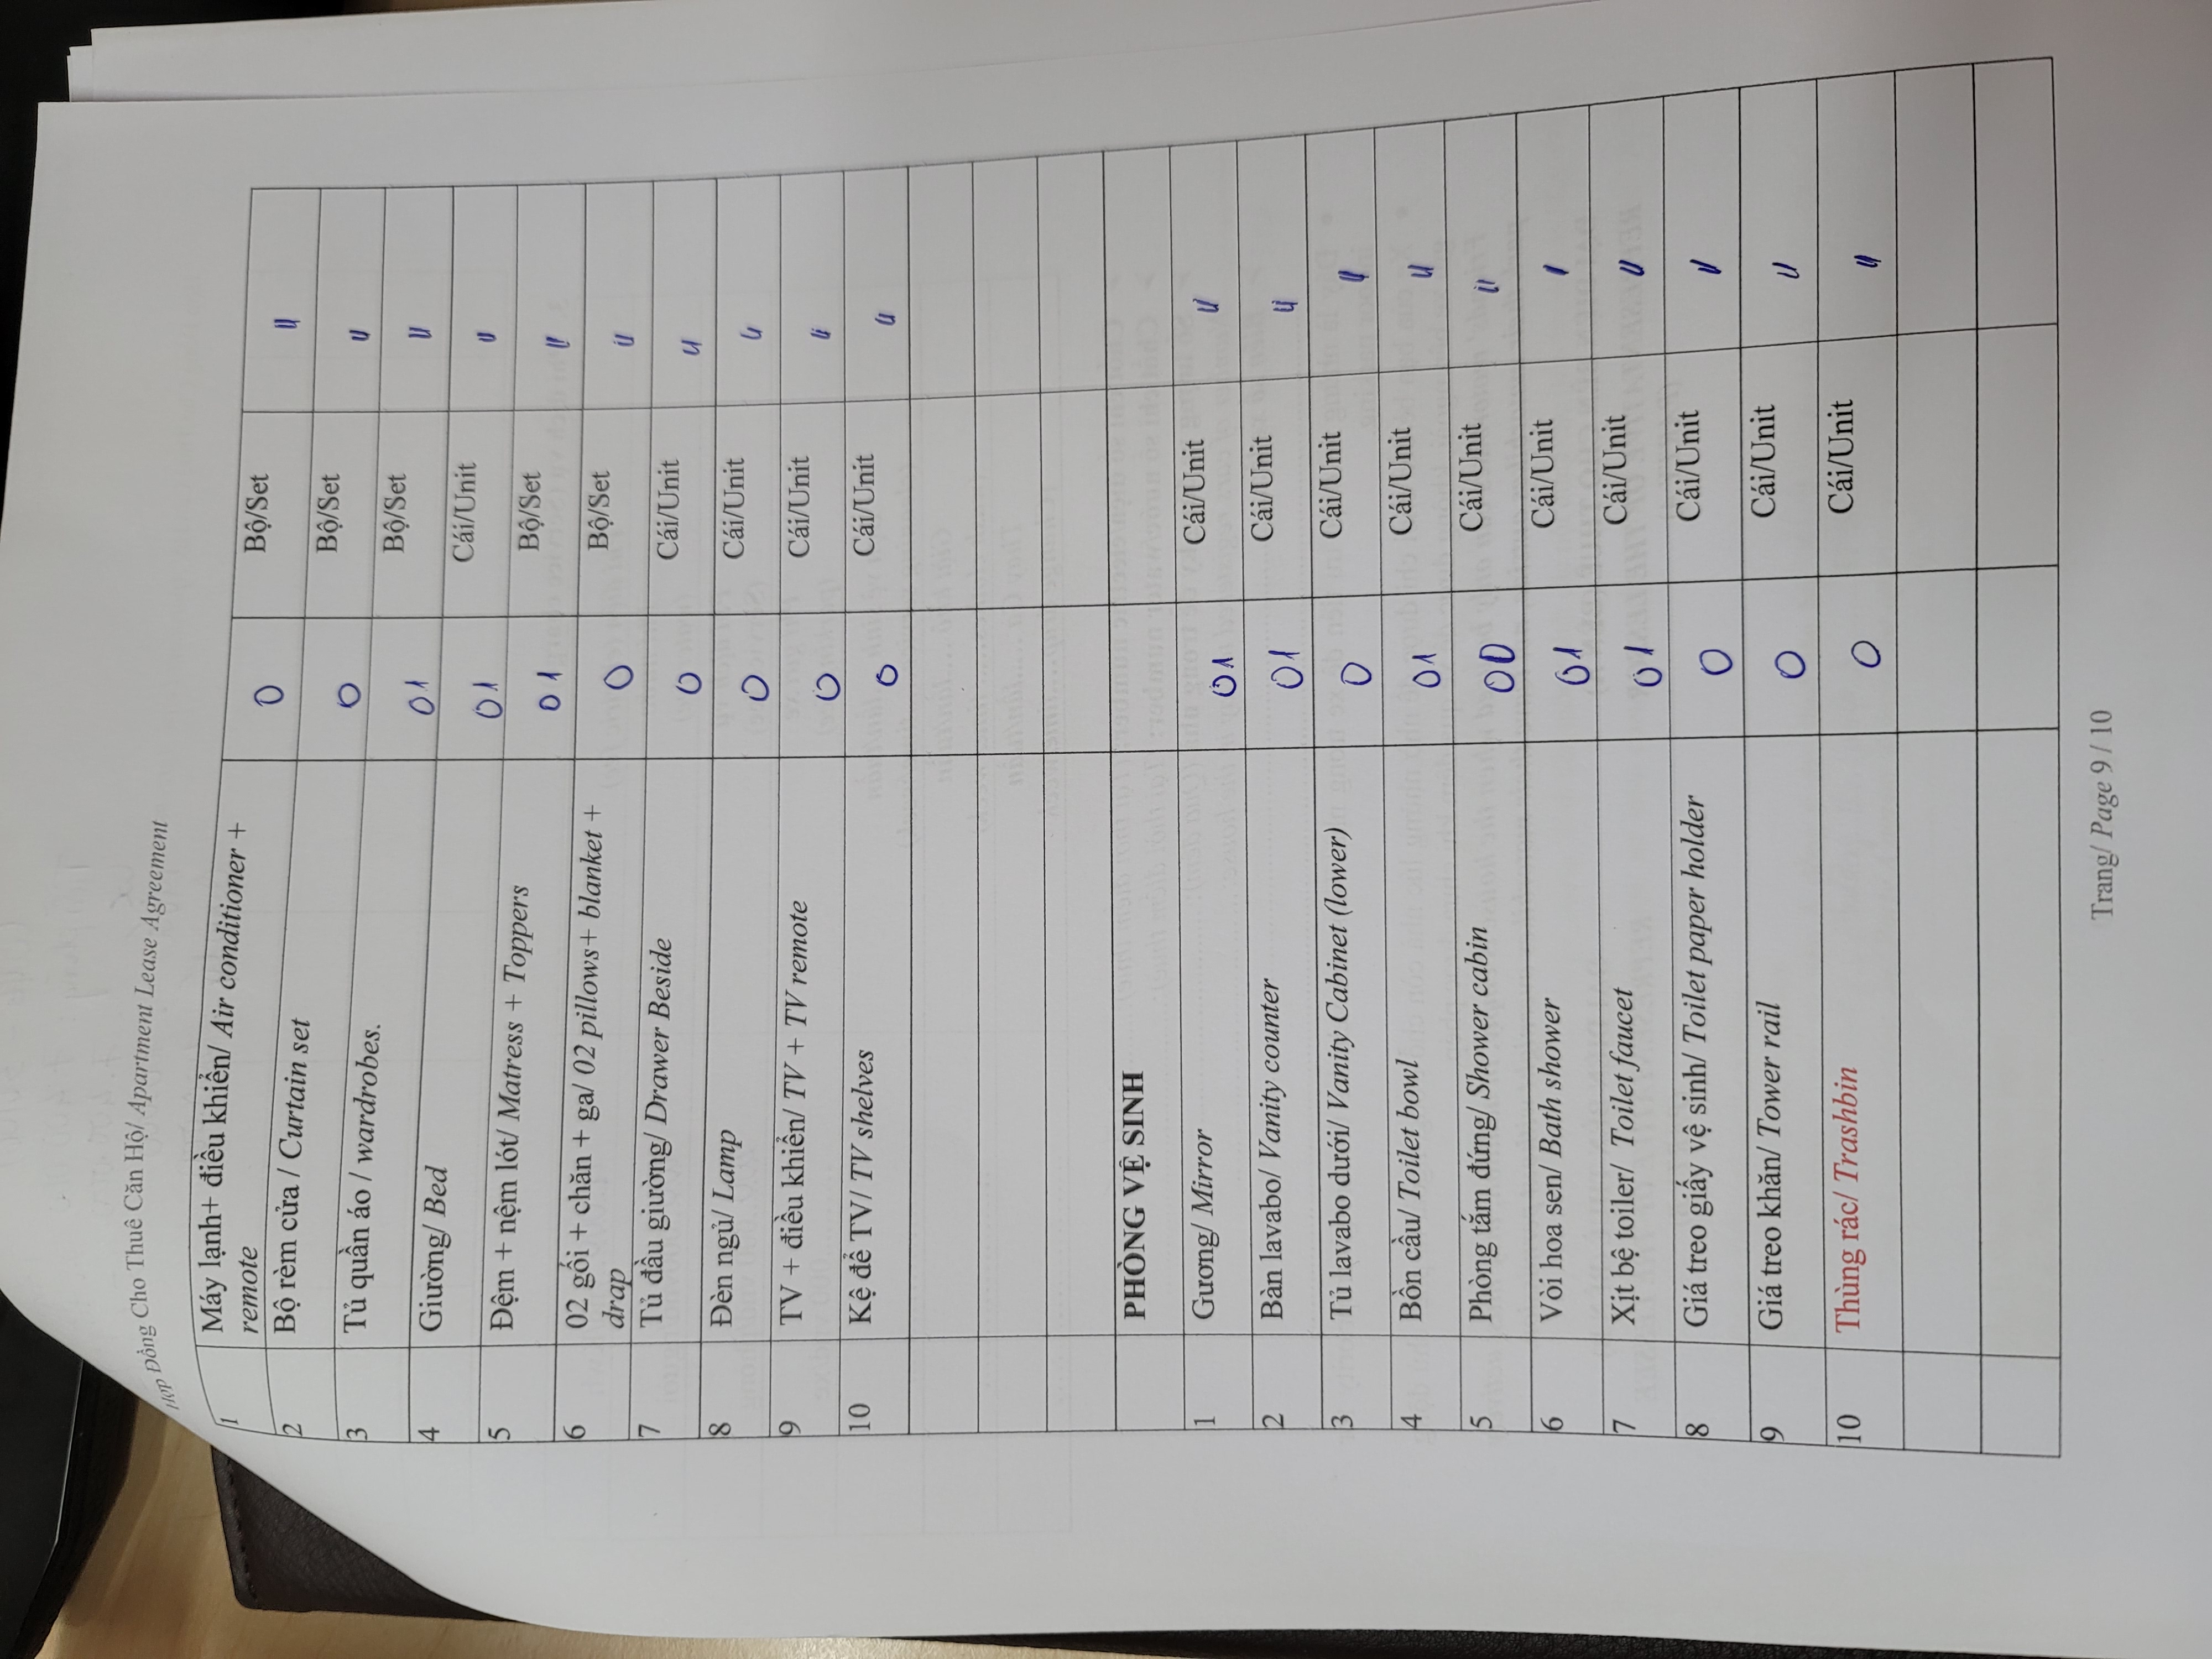 Hợp Đồng Cho Thuê Căn Hộ/ Apartment Lease Agreement
1 Máy lạnh+ điều khiển/ Air conditioner + 0 Bộ/Set "
remote
2 Bộ rèm cửa / Curtain set 0 Bộ/Set "
3 Tủ quần áo / wardrobes. 01 Bộ/Set "
4 Giường/ Bed 01 Cái/Unit "
5 Đệm + nệm lót/ Matress + Toppers 01 Bộ/Set "
6 02 gối + chăn + ga/ 02 pillows+ blanket + 0 Bộ/Set "
drap
7 Tủ đầu giường/ Drawer Beside 0 Cái/Unit "
8 Đèn ngủ/ Lamp 0 Cái/Unit "
9 TV + điều khiển/ TV + TV remote 0 Cái/Unit "
10 Kệ để TV/ TV shelves 0 Cái/Unit "
PHÒNG VỆ SINH
1 Gương/ Mirror 01 Cái/Unit "
2 Bàn lavabo/ Vanity counter 01 Cái/Unit "
3 Tủ lavabo dưới/ Vanity Cabinet (lower) 0 Cái/Unit "
4 Bồn cầu/ Toilet bowl 01 Cái/Unit "
5 Phòng tắm đứng/ Shower cabin 00 Cái/Unit "
6 Vòi hoa sen/ Bath shower 01 Cái/Unit "
7 Xịt bệ toiler/ Toilet faucet 01 Cái/Unit "
8 Giá treo giấy vệ sinh/ Toilet paper holder 0 Cái/Unit "
9 Giá treo khăn/ Tower rail 0 Cái/Unit "
10 Thùng rác/ Trashbin 0 Cái/Unit "
Trang/ Page 9 / 10